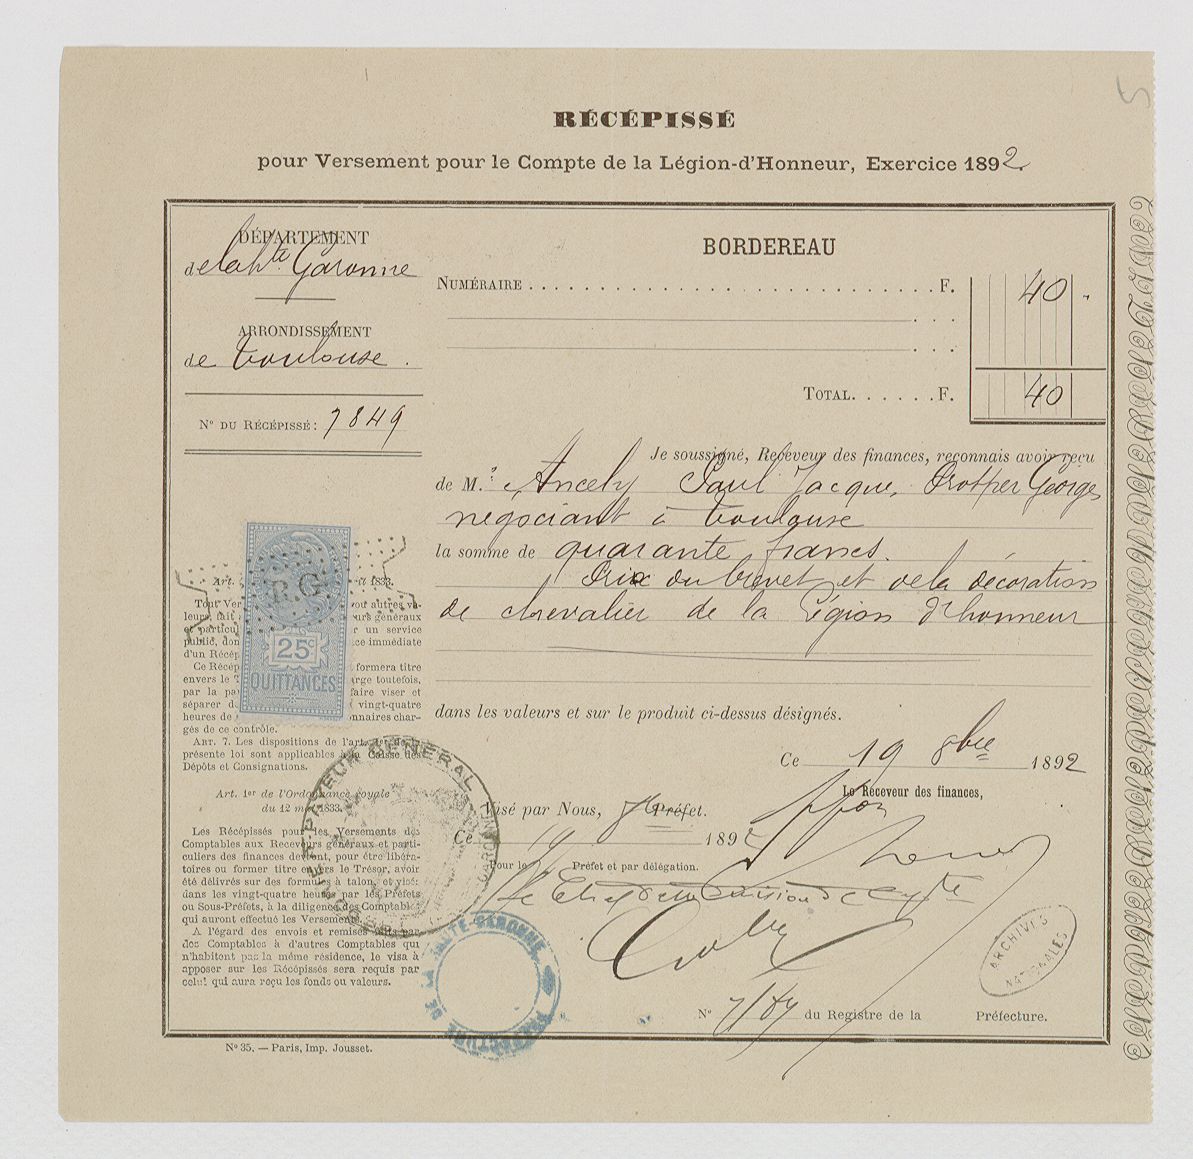 5
RÉCÉPISSÉ
pour Versement pour le Compte de la Légion-d'Honneur, Exercice 1892.
DÉPARTEMENT
de la hte Garonne
ARRONDISSEMENT
de Toulouse.
N° DU RÉCÉPISSÉ: 7849
BORDEREAU
NUMÉRAIRE F. 40
TOTAL F. 40
Je soussigné, Receveur des finances, reconnais avoir reçu
de M.r Ancely Paul Jacques Prosper Georges
négociant à Toulouse
la somme de quarante francs.
Prix du brevet et de la décoration
de chevalier de la Légion d'honneur
dans les valeurs et sur le produit ci-dessus désignés.
Ce 19 8bre 1892
Le Receveur des finances,
Visé par Nous, Préfet.
Ce 19 1892
Pour le Préfet et par délégation.
N° du Registre de la Préfecture.
ARCHIVES
NATIONALES
R.G
25c
QUITTANCES
Art. 1833.
d'un Récép
Ce Récép formera titre
envers le arge toutefois,
par la pa faire viser et
séparer d vingt-quatre
heures de nnaires char-
gés de ce contrôle.
ART. 7. Les dispositions de l'art. de la
présente loi sont applicables à la Caisse des
Dépôts et Consignations.
Art. 1er de l'Ordonnance royale
du 12 mai 1833.
Les Récépissés pour les Versements des
Comptables aux Receveurs généraux et parti-
culiers des finances devront, pour être libéra-
toires ou former titre envers le Trésor, avoir
été délivrés sur des formules à talon, et visés
dans les vingt-quatre heures par les Préfets
ou Sous-Préfets, à la diligence des Comptables
qui auront effectué les Versements.
A l'égard des envois et remises faits par
des Comptables à d'autres Comptables qui
n'habitent pas la même résidence, le visa à
apposer sur les Récépissés sera requis par
celui qui aura reçu les fonds ou valeurs.
PAYEUR GÉNÉRAL
PRÉFECTURE DE LA HAUTE-GARONNE
N° 35. — Paris, Imp. Jousset.